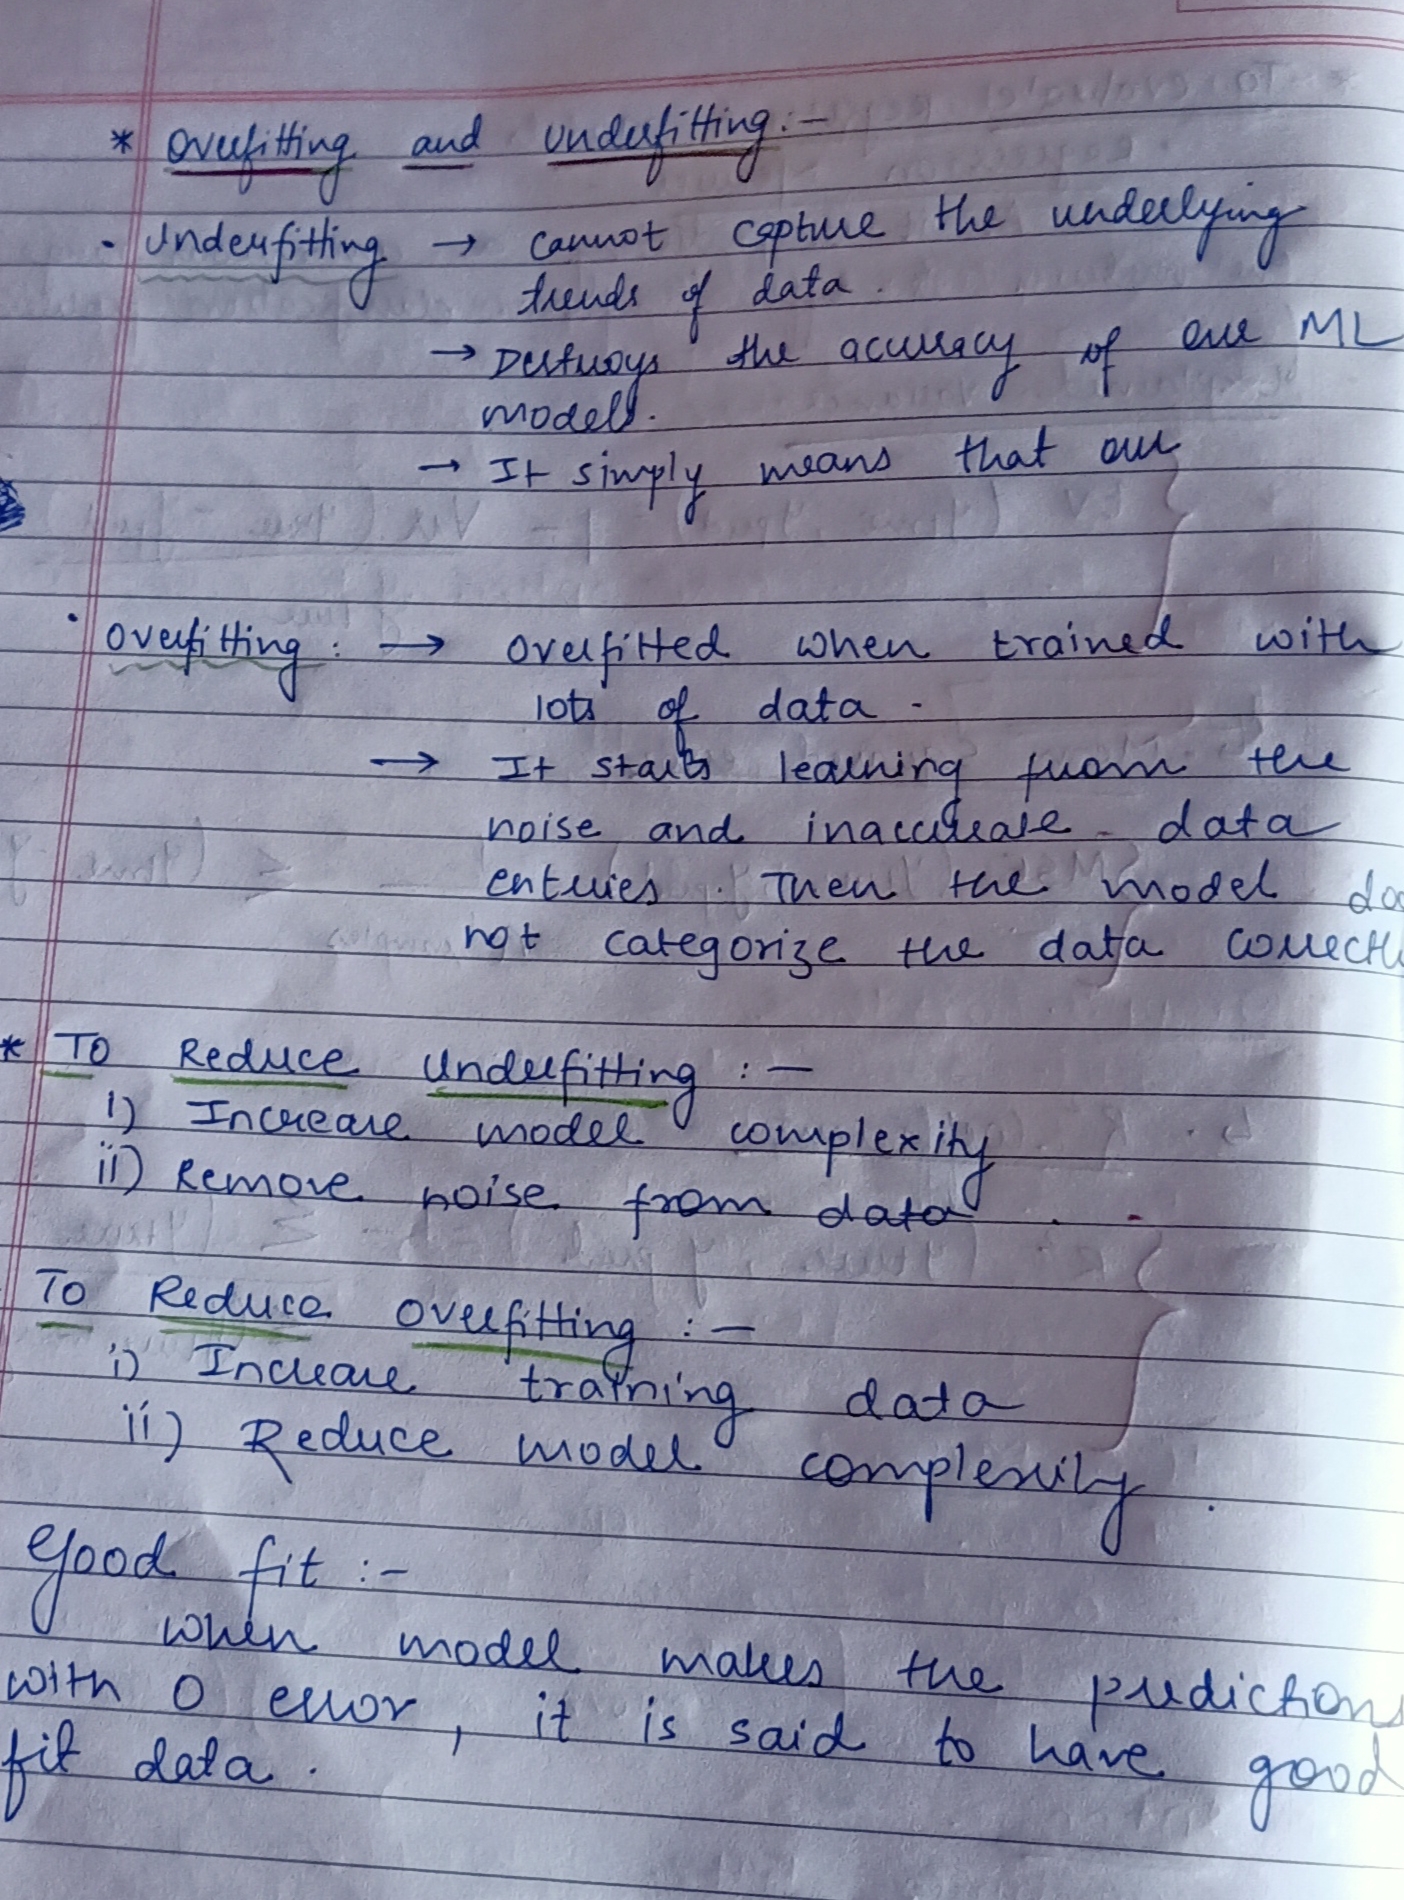 * Overfitting and Underfitting :-
• Underfitting → cannot capture the underlying
trends of data.
→ Destroys the accuracy of our ML
models.
→ It simply means that our
• Overfitting : → Overfitted when trained with
lots of data.
→ It starts learning from the
noise and inaccurate data
entries. Then the model do
not categorize the data correctl
* To Reduce Underfitting :-
i) Increase model complexity
ii) Remove noise from data.
To Reduce Overfitting :-
i) Increase training data
ii) Reduce model complexity.
Good fit :-
when model makes the predictions
with 0 error, it is said to have good
fit data.